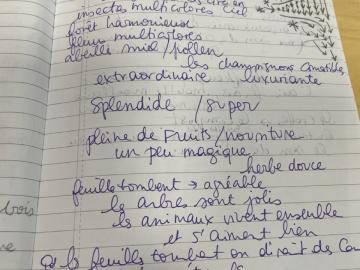 insectes multicolores Ciel
forêt harmonieux
fleur multicolores
abeille miel/pollen
les champignons comestibles
extraordinaire luxuriante
splendide / super
pleine de fruits/nourriture
un peu magique
herbe douce
feuille tombent → agréable
les arbres sont jolis
les animaux vivent ensemble
et s'aiment bien
les feuilles tombent on dirait des
bois